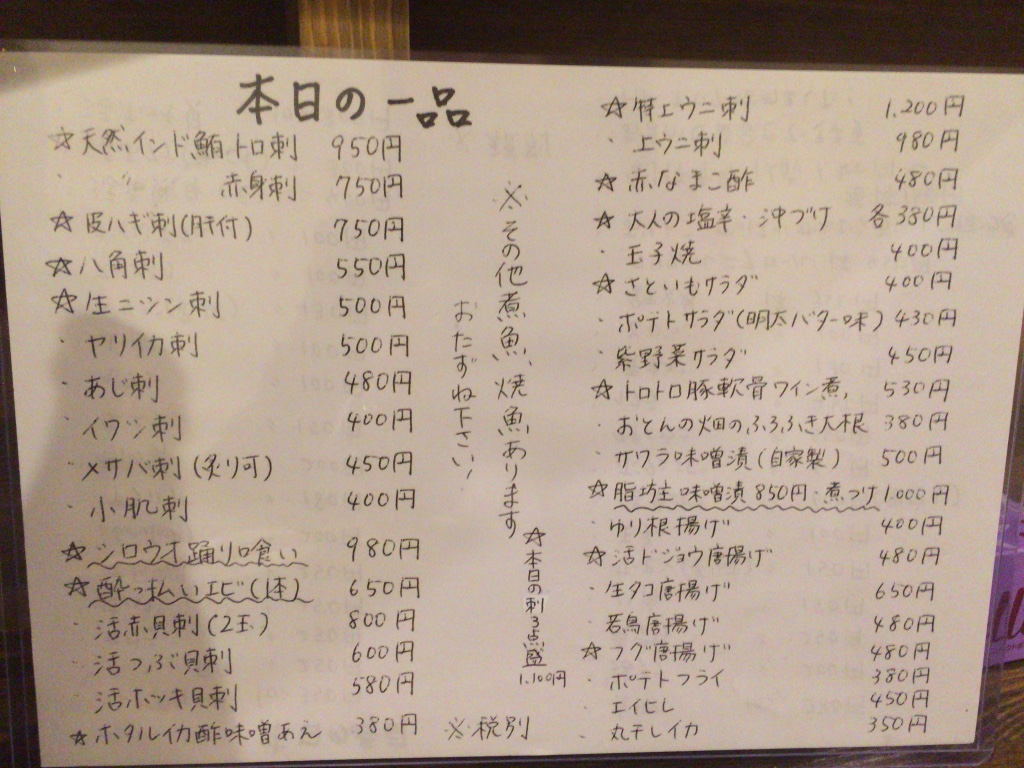 本日の一品
☆天然インド鮪トロ刺 950円
・ 〃 赤身刺 750円
☆皮ハギ刺(肝付) 750円
☆八角刺 550円
☆生ニシン刺 500円
・ヤリイカ刺 500円
・あじ刺 480円
・イワシ刺 400円
・メサバ刺(炙り可) 450円
・小肌刺 400円
☆シロウオ踊り喰い 980円
☆酔っ払いエビ(1本) 650円
・活赤貝刺(2玉) 800円
・活つぶ貝刺 600円
・活ホッキ貝刺 580円
☆ホタルイカ酢味噌あえ 380円
※その他煮魚、焼魚あります
おたずね下さい!
☆本日の刺3点盛
1.100円
※税別
☆特エウニ刺 1.200円
・エウニ刺 980円
☆赤なまこ酢 480円
☆大人の塩辛・沖づけ 各380円
・玉子焼 400円
☆さといもサラダ 400円
・ポテトサラダ(明太バター味) 430円
・紫野菜サラダ 450円
☆トロトロ豚軟骨ワイン煮, 530円
・おとんの畑のふろふき大根 380円
・サワラ味噌漬(自家製) 500円
☆脂坊主味噌漬850円・煮つけ 1.000円
・ゆり根揚げ 400円
☆活ドジョウ唐揚げ 480円
・生タコ唐揚げ 650円
・若鳥唐揚げ 480円
☆フグ唐揚げ 480円
・ポテトフライ 380円
・エイヒレ 450円
・丸干しイカ 350円